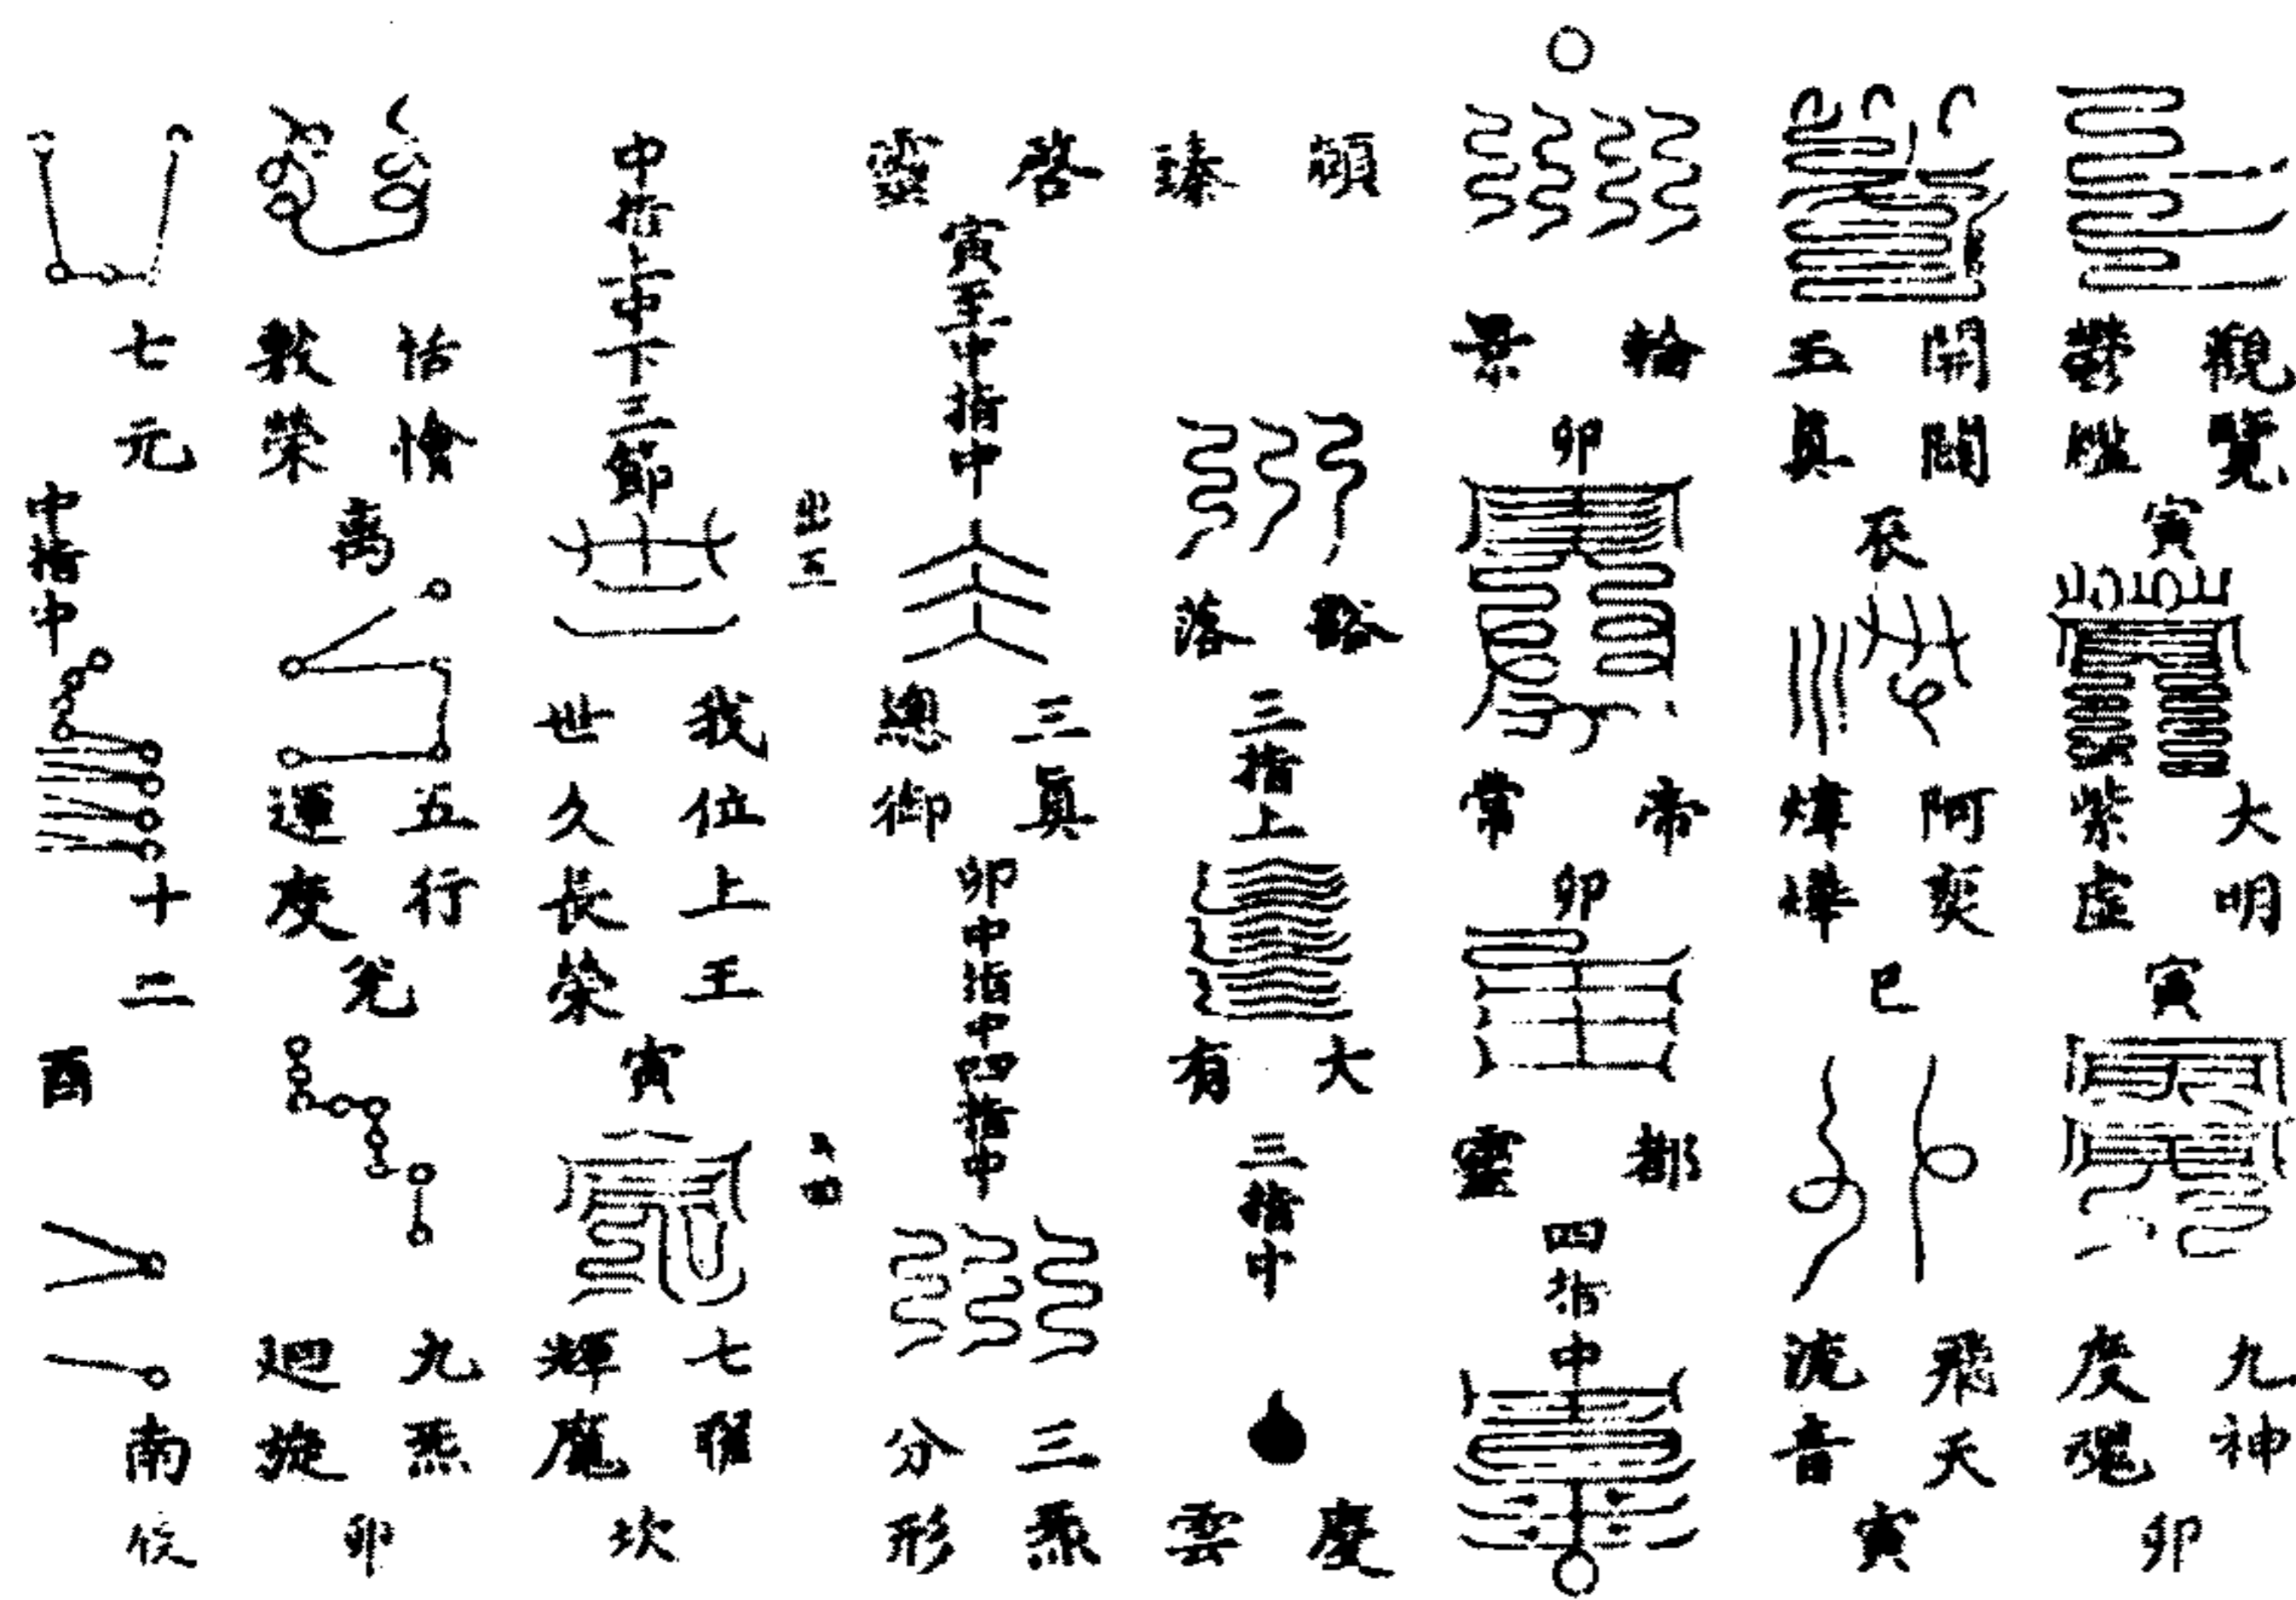 觀覽
鬱
寅
大明
紫虛
寅
九神
度魂
卯
開
五真
辰
阿奕
煒燁
巳
飛天
流音
寅
輪
景
卯
帝
常
卯
都
靈
四指中
臻
落
三指上
大
有
三指中
慶
雲
啓
靈
寅至中指中
三真
總御
卯中指中四指中
三炁
分形
中指上中下三節
我位上王
世久長榮
寅
七
輝魔
坎
恬
敷榮
離
五行
運度
兌
九炁
迴旋
卯
七元
中指中
十二
酉
南